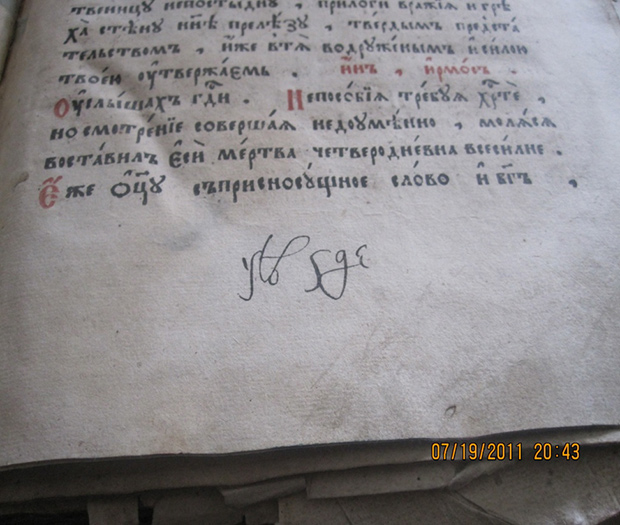 твенницꙋ непостыднꙋ , прилоги вражїѧ и грѣ
ха̀ стѣнꙋ нн҃ѣ прелѣзꙋ , твердымъ предста́
тельствомъ , и҆́же в̾тѧ̀ водрꙋже́нымъ и҆ си́лою
твое́ю ᲂу҆твержа́емь . и҆ н҃ , і҆рмо́съ .
Оу҆слы́шахъ гд҃и . Непосо́бїѧ тре́бꙋѧ хр҃те ,
но смотре́нїе соверша́ѧ недоꙋмѣ́нно , молѧ́сѧ
воста́вилъ є҆сѝ ме́ртва четвероднѐвна всеси́лне .
Е҆́же ѻ҆ц҃ꙋ съприсносꙋ́щное сло́во и҆ бг҃ъ ,
07/19/2011 20:43